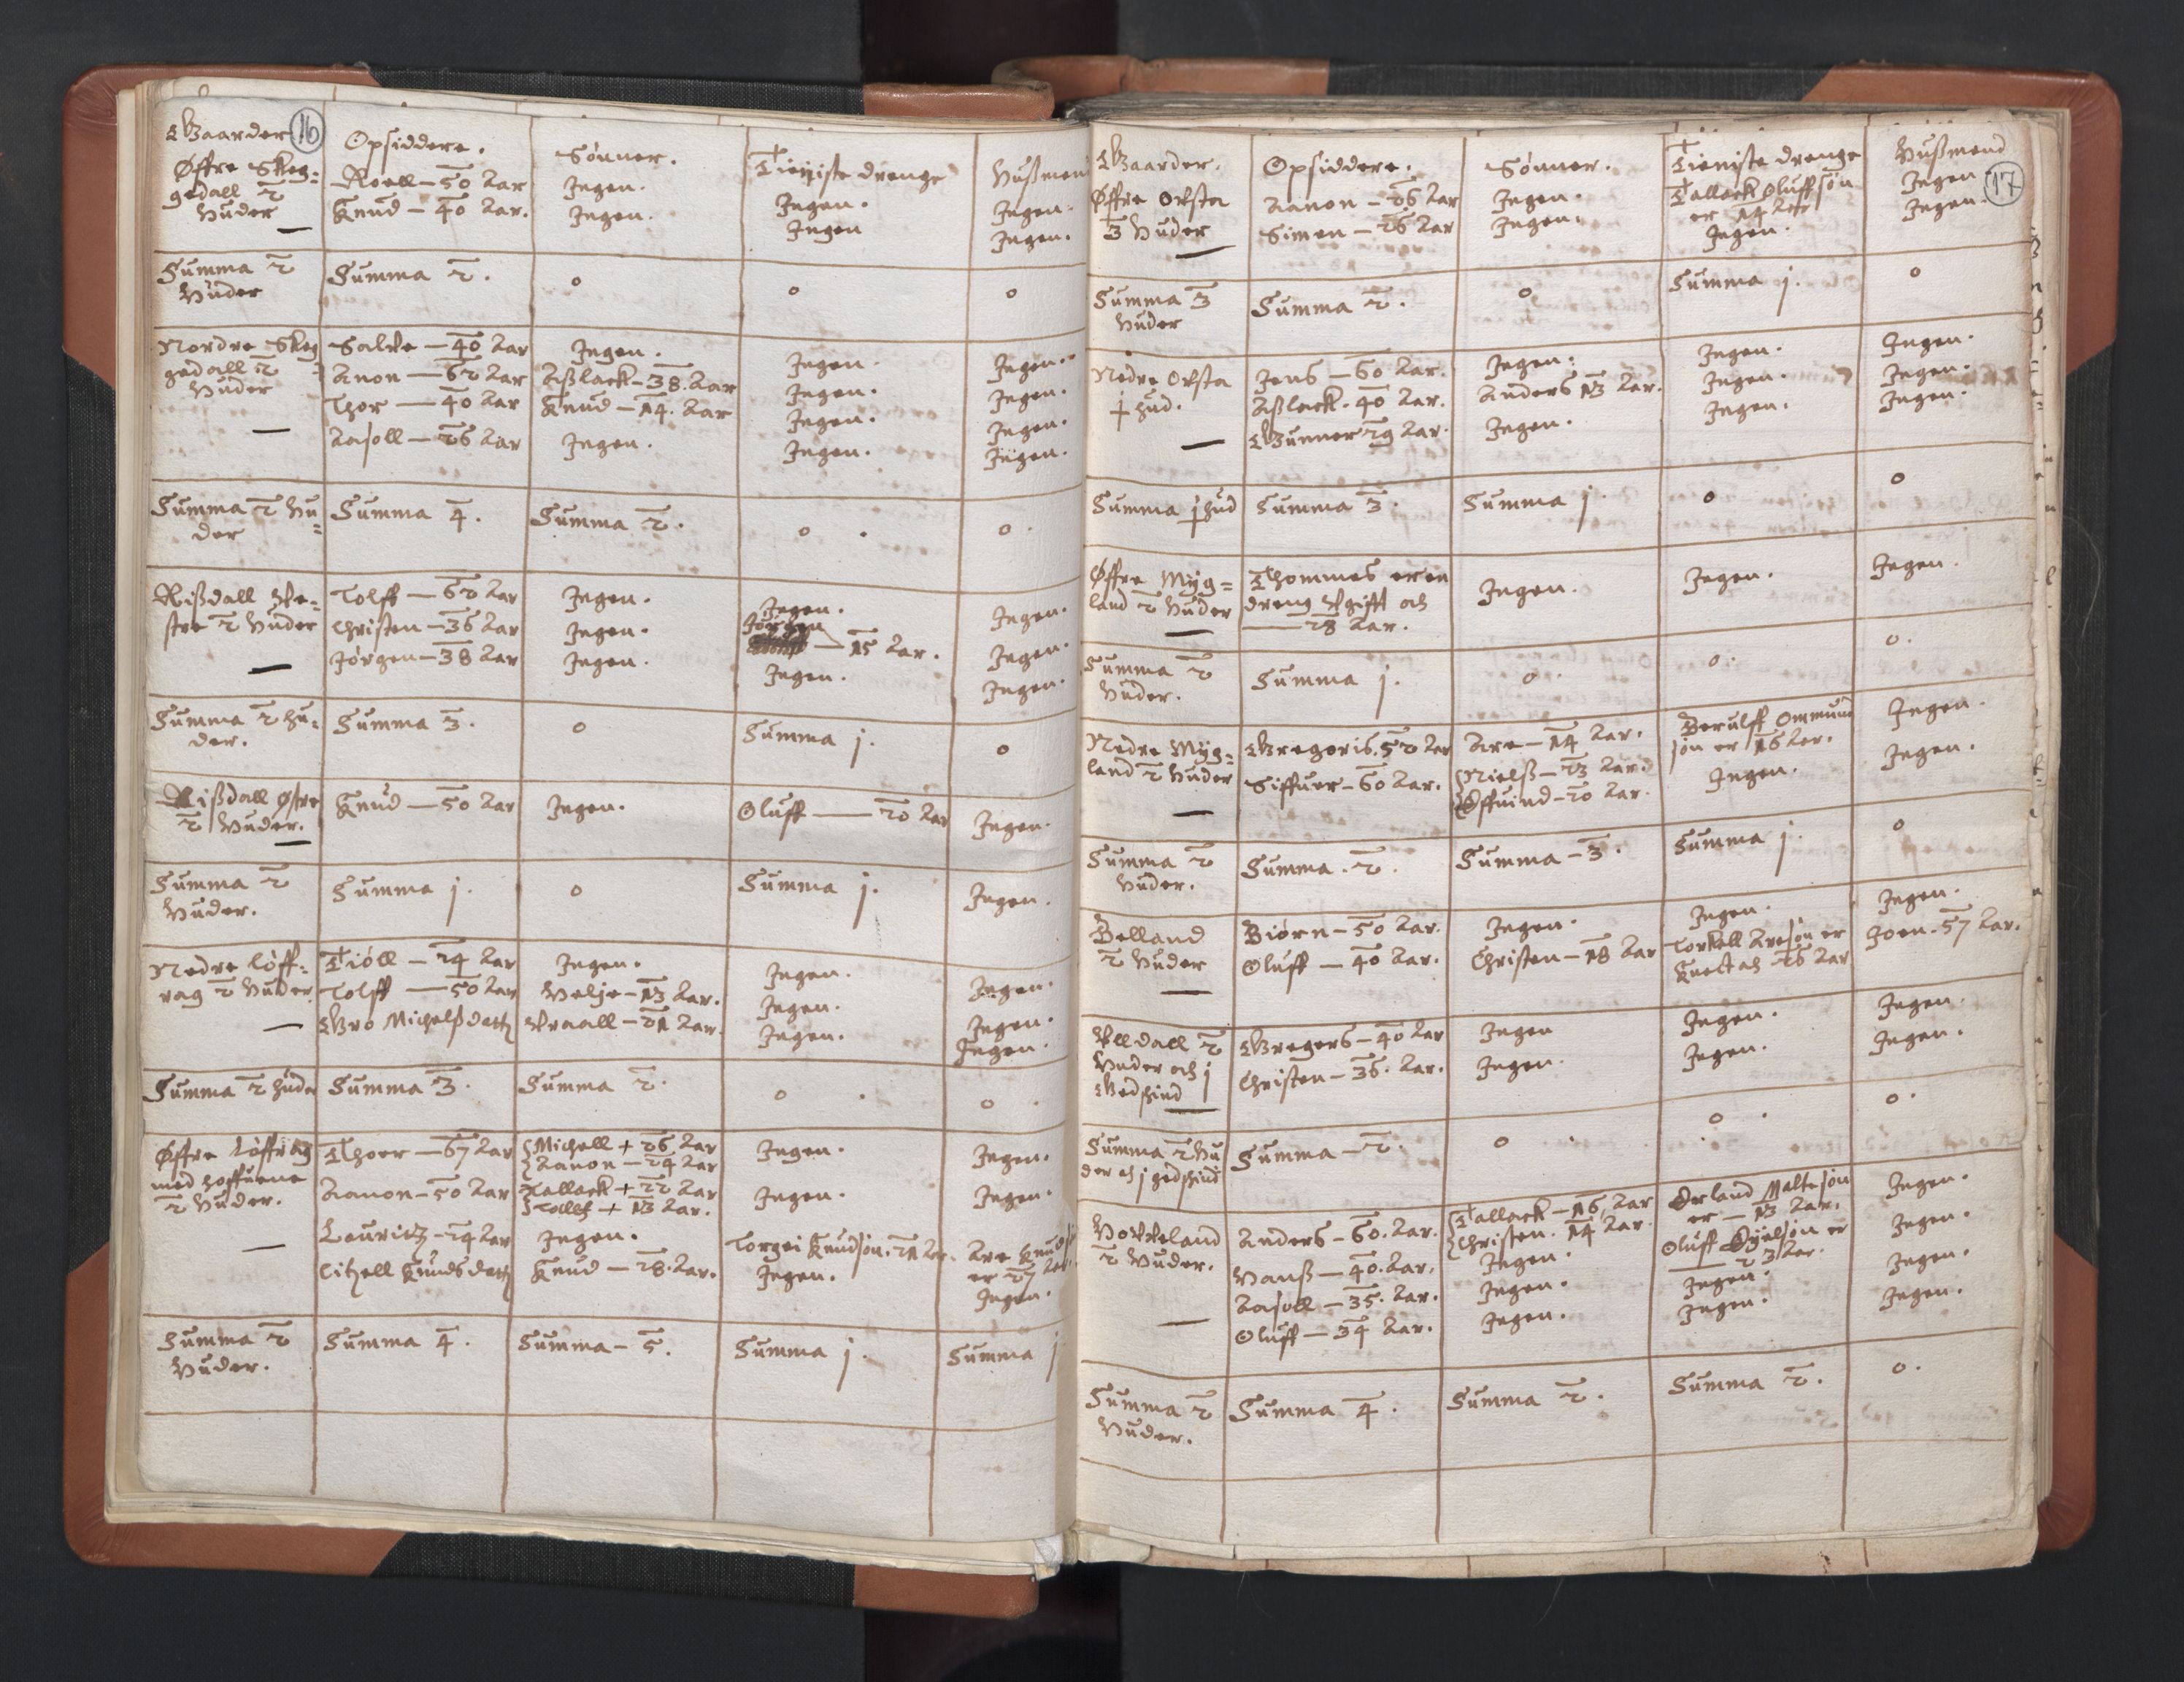 Gaarder
16
Opsiddere.
Sønner.
Tieniste drenge
Hußmend
Øffre Skeg=
gedall 2
Huder
Roell - 50 Aar
Knud - 40 Aar.
Ingen.
Ingen.
Ingen.
Ingen
Ingen.
Ingen.
Summa 2
Huder
Summa 2.
0
0
0
Nordre Skeg
gedall 2
Huder
Salve - 40 Aar
Anon - 62 Aar
Thor - 40 Aar
Aasoll - 26 Aar
Ingen.
Aßlack - 38. Aar
Knud - 14. Aar
Ingen.
Ingen.
Ingen.
Ingen.
Ingen.
Ingen.
Ingen.
Ingen.
Ingen.
Summa 2 Hu=
der
Summa 4.
Summa 2.
0
0.
Rißdall Ve=
stre 2 Huder
Tolff - 62 Aar
Christen - 36 Aar
Jørgen - 38 Aar
Ingen.
Ingen.
Ingen.
Ingen.
Jørgen
- 15 Aar.
Ingen.
Ingen.
Ingen.
Ingen.
Summa 2 hu=
der.
Summa 3.
0
Summa j.
0
Rißdall Østre
2 Huder.
Knud - 50 Aar
Ingen.
Oluff - 20 Aar
Ingen.
Summa 2
Huder.
Summa j.
0
Summa j.
Ingen.
Nedre løff=
rag 2 Huder
Tiøll - 24 Aar
Tolff - 50 Aar
Gro Michelßdatt
Ingen.
Helje - 13 Aar.
Vraall - 21 Aar.
Ingen.
Ingen.
Ingen.
Ingen.
Ingen.
Ingen.
Summa 2 huder
Summa 3.
Summa 2.
0
0
Øffre Løffrag
med hoffuene
2 Huder.
Thoer - 67 Aar
Aanon - 50 Aar
Lauritz - 24 Aar
Citzell Knudsdatt
Michell + 26 Aar
Aanon - 24 Aar
Tallack + 22 Aar
Tolleff + 13 Aar.
Ingen.
Knud - 28. Aar.
Ingen.
Ingen.
Torgei Knudsøn. 21 Aar.
Ingen.
Ingen.
Ingen.
Are Knuds
er 27 Aar.
Ingen.
Summa 2
Huder.
Summa 4.
Summa - 5.
Summa j.
Summa j
Gaarder.
Opsiddere.
Sønner.
Tieniste drenge
Hußmend
17
Øffre Orsta
3 Huder
Aanon - 26 Aar
Simen - 26 Aar
Ingen.
Ingen.
Tallack Oluffsøn
er 14 Aar
Ingen.
Ingen.
Ingen.
Summa 3
Huder
Summa 2.
0
Summa j.
0
Nedre Orsta
j hud.
Jens - 60 Aar.
Aßlack - 40 Aar.
Gunner 29 Aar.
Ingen.
Anders 13 Aar.
Ingen.
Ingen.
Ingen.
Ingen.
Ingen.
Ingen.
Ingen.
Summa j hud
Summa 3.
Summa j.
0
0
Øffre Myg=
land 2 Huder
Thommes er en
dreng Vgifft och
- 28 Aar.
Ingen.
Ingen.
Ingen.
Summa 2
Huder.
Summa j.
0.
0.
0.
Nedre Myg=
land 2 Huder
Gregoris. 52 Aar
Siffuer - 60 Aar.
Are - 14 Aar.
Nielß - 23 Aar.
Øffuind - 20 Aar.
Berulff Ommund
søn er 16 Aar.
Ingen.
Ingen.
Ingen.
Summa 2
Huder.
Summa. 2.
Summa - 3.
Summa j.
0
Belland
2 Huder
Biørn - 50 Aar.
Oluff - 40 Aar.
Ingen.
Christen - 18 Aar
Ingen.
Torkell Aresøn er
26 Aar
Ingen.
Joen - 57 Aar.
Vlldall 2
Huder och j
Gedskind
Gregers - 40 Aar
Christen - 36. Aar.
Ingen
Ingen.
Ingen.
Ingen.
Ingen.
Ingen.
Summa 2 Hu
der och j gedskind
Summa - 2.
0
0
0.
Hoffueland
2 Huder.
Anders - 60. Aar.
Hanß - 40. Aar.
Aasoll - 35. Aar.
Oluff - 34 Aar.
Tallack - 16, Aar
Christen. 14 Aar.
Ingen.
Ingen.
Ingen.
Erland Maltesøn
er - 13 Aar.
Oluff Øyelsøn er
- 23 Aar.
Ingen.
Ingen.
Ingen.
Ingen.
Ingen.
Ingen.
Summa 2
Huder.
Summa 4.
Summa 2.
Summa 2.
0.